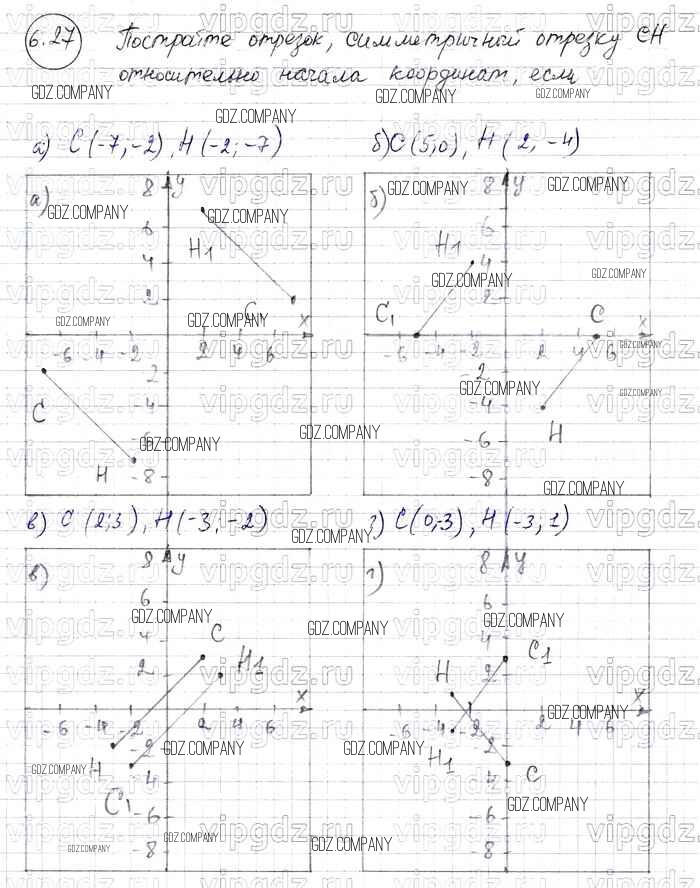 6.27 Постройте отрезок, симметричный отрезку CH
относительно начала координат, если
GDZ.COMPANY GDZ.COMPANY GDZ.COMPANY GDZ.COMPANY
а) C(-7,-2), H(-2;-7) б) C(5;0), H(2,-4)
а) 8 y б) 8 y
GDZ.COMPANY GDZ.COMPANY GDZ.COMPANY
6 6
H1 4 H1 4
GDZ.COMPANY GDZ.COMPANY
2 2
C1 C
GDZ.COMPANY GDZ.COMPANY x x
-6 -4 -2 2 4 6 -6 -4 -2 2 4 6
GDZ.COMPANY
2 -2
GDZ.COMPANY GDZ.COMPANY
C -4 -4
GDZ.COMPANY GDZ.COMPANY
-6 -6 H
H -8 -8
GDZ.COMPANY
в) C(2;3), H(-3;-2) г) C(0,-3), H(-3,1)
GDZ.COMPANY
в) 8 y г) 8 y
6 6
GDZ.COMPANY GDZ.COMPANY GDZ.COMPANY
4 C 4 C1
2 H1 H 2
x x
-6 -4 -2 2 4 6 -6 -4 -2 2 4 6
GDZ.COMPANY
-2 -2
GDZ.COMPANY GDZ.COMPANY
H H1
GDZ.COMPANY
-4 -4 C
C1 GDZ.COMPANY
-6 -6
GDZ.COMPANY GDZ.COMPANY GDZ.COMPANY
-8 -8